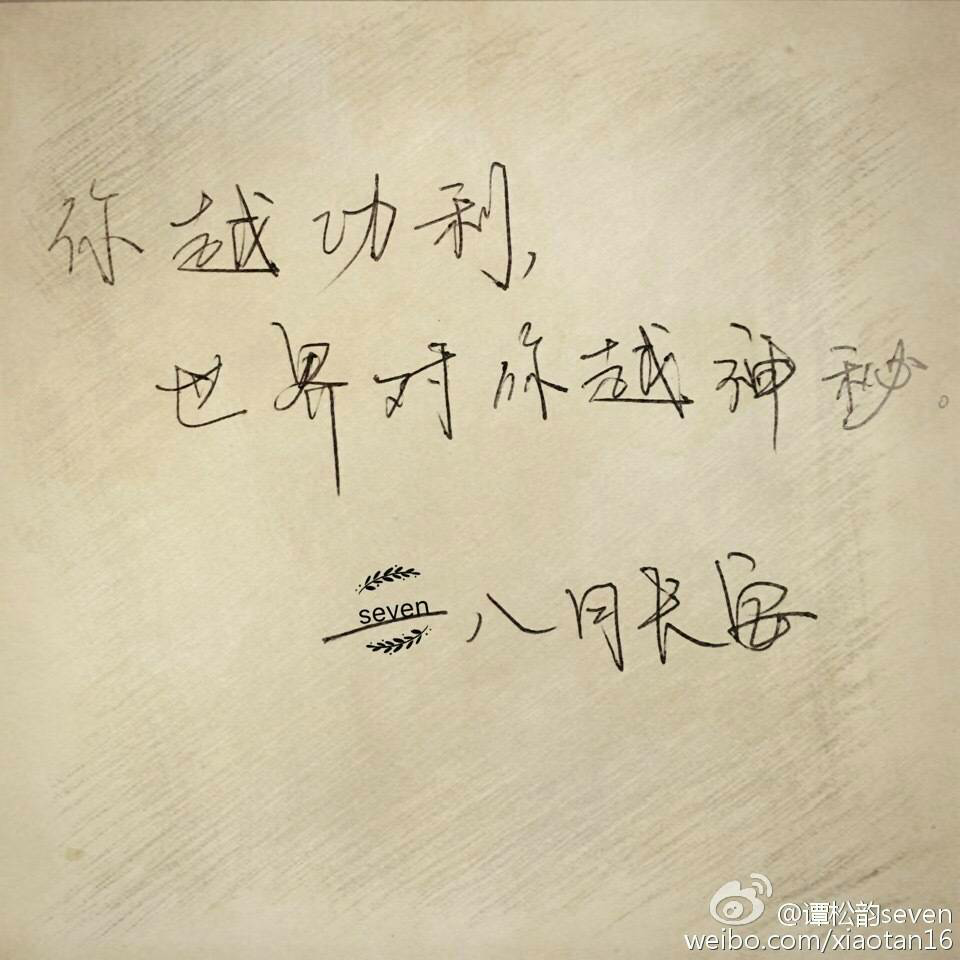 你越功利，
世界对你越神秘。
seven
——八月长安
@谭松韵seven
weibo.com/xiaotan16